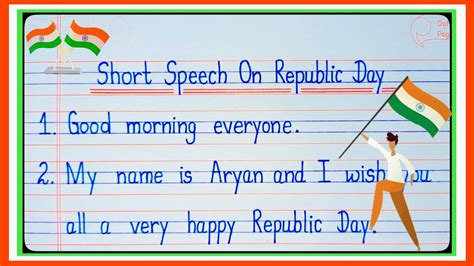 Short Speech On Republic Day
1. Good morning everyone.
2. My name is Aryan and I wish you
all a very happy Republic Day.